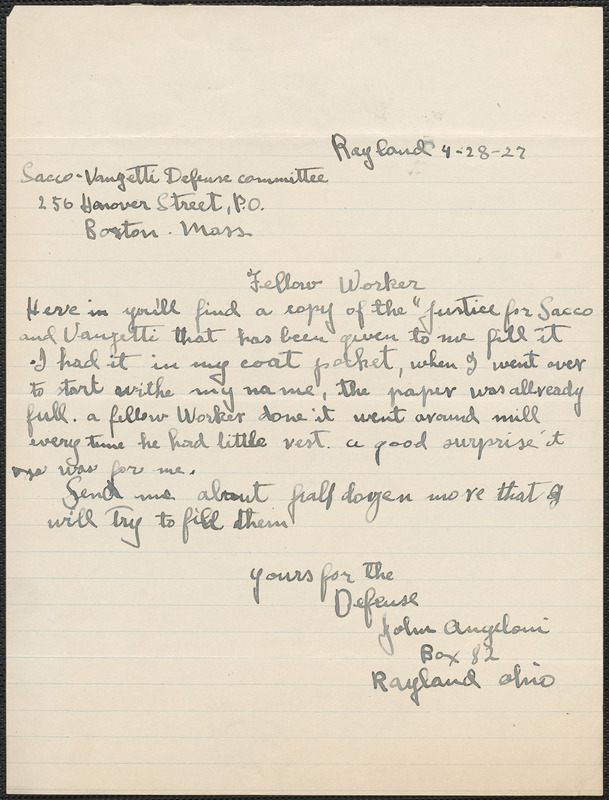 Rayland 4-28-27
Sacco-Vanzetti Defense committee
256 Hanover Street, P.O.
Boston. Mass
Fellow Worker
Here in you'll find a copy of the "Justice for Sacco
and Vanzetti that has been given to me fill it
I had it in my coat pocket, when I went over
to start withe my name, the paper was allready
full. a fellow Worker done it went around mill
every time he had little rest. a good surprise it
was for me.
Send me about half dozen more that I
will try to fill them
yours for the
Defense
John Angeloni
Box 82
Rayland Ohio